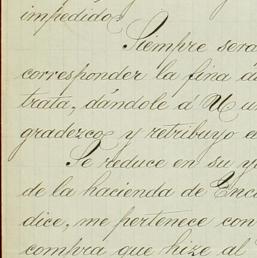 impedido.
Siempre será
corresponder la fina a
trata, dándole á U u
gradezco y retribuyo
Se reduce en su
de la hacienda de Enc
dice, me pertenece con
compra que hize al